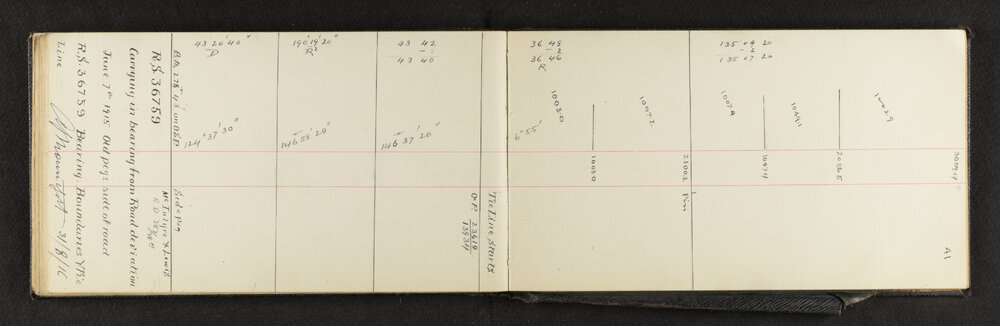 Line
R.S. 36759 Bearing. Boundaries & Tie
31/8/16
June 7th 1915 Old pegs side of road
Carrying in bearing from Road deviation
R.S. 36759
B.A. 278° 43' on OSP
Side peg
McIntyre & Lewis
43 20' 40"
D
124° 37' 30"
190° 19' 20"
R2
146 58' 20"
43 42
- 2
43 40
146 37' 20"
Tie Line Starts
O.P. 23619
13934
36 48
- 2
36 46
R
6° 55'
10030
10030
10972
21002
Pin
135 09 20
- 2
135 07 20
10074
10491
20565
10029
30594
41